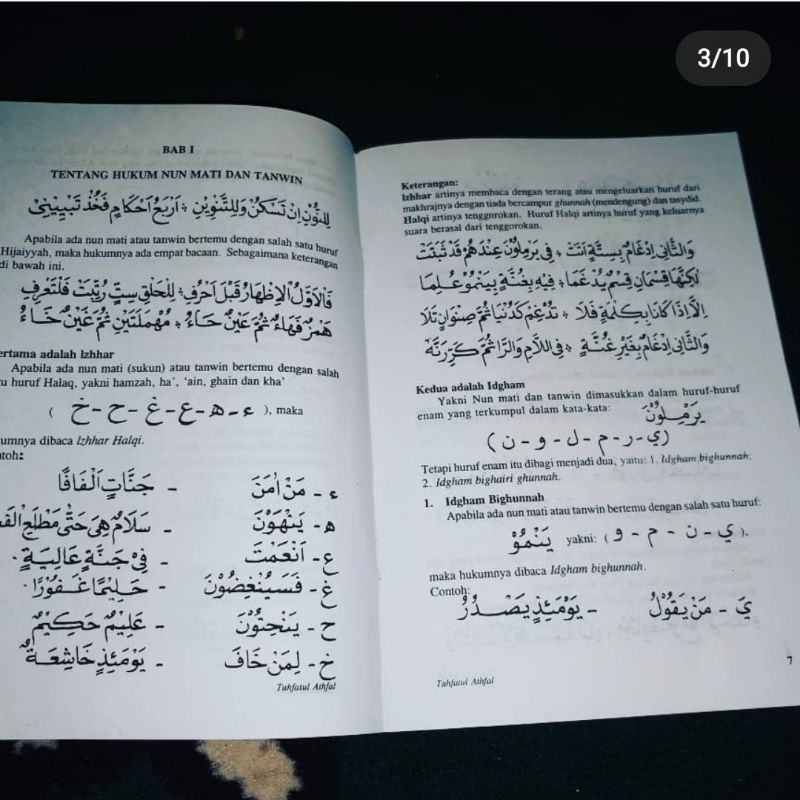 3/10
BAB I
TENTANG HUKUM NUN MATI DAN TANWIN
لِلنُّوْنِ اِنْ تَسْكُنْ وَلِلتَّنْوِيْنِ * اَرْبَعُ اَحْكَامٍ فَخُذْ تَبْيِيْنِيْ
Apabila ada nun mati atau tanwin bertemu dengan salah satu huruf
Hijaiyyah, maka hukumnya ada empat bacaan. Sebagaimana keterangan
di bawah ini.
فَالْاَوَّلُ الْاِظْهَارُ قَبْلَ اَحْرُفِ * لِلْحَلْقِ سِتٌّ رُتِّبَتْ فَلْتَعْرِفِ
هَمْزٌ فَهَاءٌ ثُمَّ عَيْنٌ حَاءُ * مُهْمَلَتَيْنِ ثُمَّ غَيْنٌ خَاءُ
ertama adalah Izhhar
Apabila ada nun mati (sukun) atau tanwin bertemu dengan salah
tu huruf Halaq, yakni hamzah, ha', 'ain, ghain dan kha'
( ء - ه - ع - غ - ح - خ ), maka
umnya dibaca Izhhar Halqi.
ntoh:
ء - مَنْ اٰمَنَ - جَنَّاتٍ اَلْفَافًا
ه - يَنْهَوْنَ - سَلَامٌ هِيَ حَتّٰى مَطْلَعِ الْفَ
ع - اَنْعَمْتَ - فِيْ جَنَّةٍ عَالِيَةٍ.
غ - فَسَيُنْغِضُوْنَ - حَلِيْمًا غَفُوْرًا.
ح - يَنْحِتُوْنَ - عَلِيْمٌ حَكِيْمٌ
خ - لِمَنْ خَافَ - يَوْمَئِذٍ خَاشِعَةٌ
Tuhfatul Athfal
Keterangan:
Izhhar artinya membaca dengan terang atau mengeluarkan huruf dari
makhrajnya dengan tiada bercampur ghunnah (mendengung) dan tasydid.
Halqi artinya tenggorokan. Huruf Halqi artinya huruf yang keluarnya
suara berasal dari tenggorokan.
وَالثَّانِي اِدْغَامٌ بِسِتَّةٍ اَتَتْ * فِي يَرْمُلُوْنَ عِنْدَهُمْ قَدْ ثَبَتَتْ
لٰكِنَّهَا قِسْمَانِ قِسْمٌ يُدْغَمَا * فِيْهِ بِغُنَّةٍ بِيَنْمُوْ عُلِمَا
اِلَّا اِذَا كَانَا بِكِلْمَةٍ فَلَا * تُدْغِمْ كَدُنْيَا ثُمَّ صِنْوَانٍ تَلَا
وَالثَّانِي اِدْغَامٌ بِغَيْرِ غُنَّةٍ * فِي اللَّامِ وَالرَّا ثُمَّ كَرِّرَنَّهْ
Kedua adalah Idgham
Yakni Nun mati dan tanwin dimasukkan dalam huruf-huruf
enam yang terkumpul dalam kata-kata: يَرْمِلُوْنَ
(ي - ر - م - ل - و - ن )
Tetapi huruf enam itu dibagi menjadi dua, yaitu: 1. Idgham bighunnah;
2. Idgham bighairi ghunnah.
1. Idgham Bighunnah
Apabila ada nun mati atau tanwin bertemu dengan salah satu huruf:
يَنْمُوْ yakni: ( ي - ن - م - و ),
maka hukumnya dibaca Idgham bighunnah.
Contoh:
يَ - مَنْ يَقُوْلُ - يَوْمَئِذٍ يَصْدُرُ
Tuhfatul Athfal
7